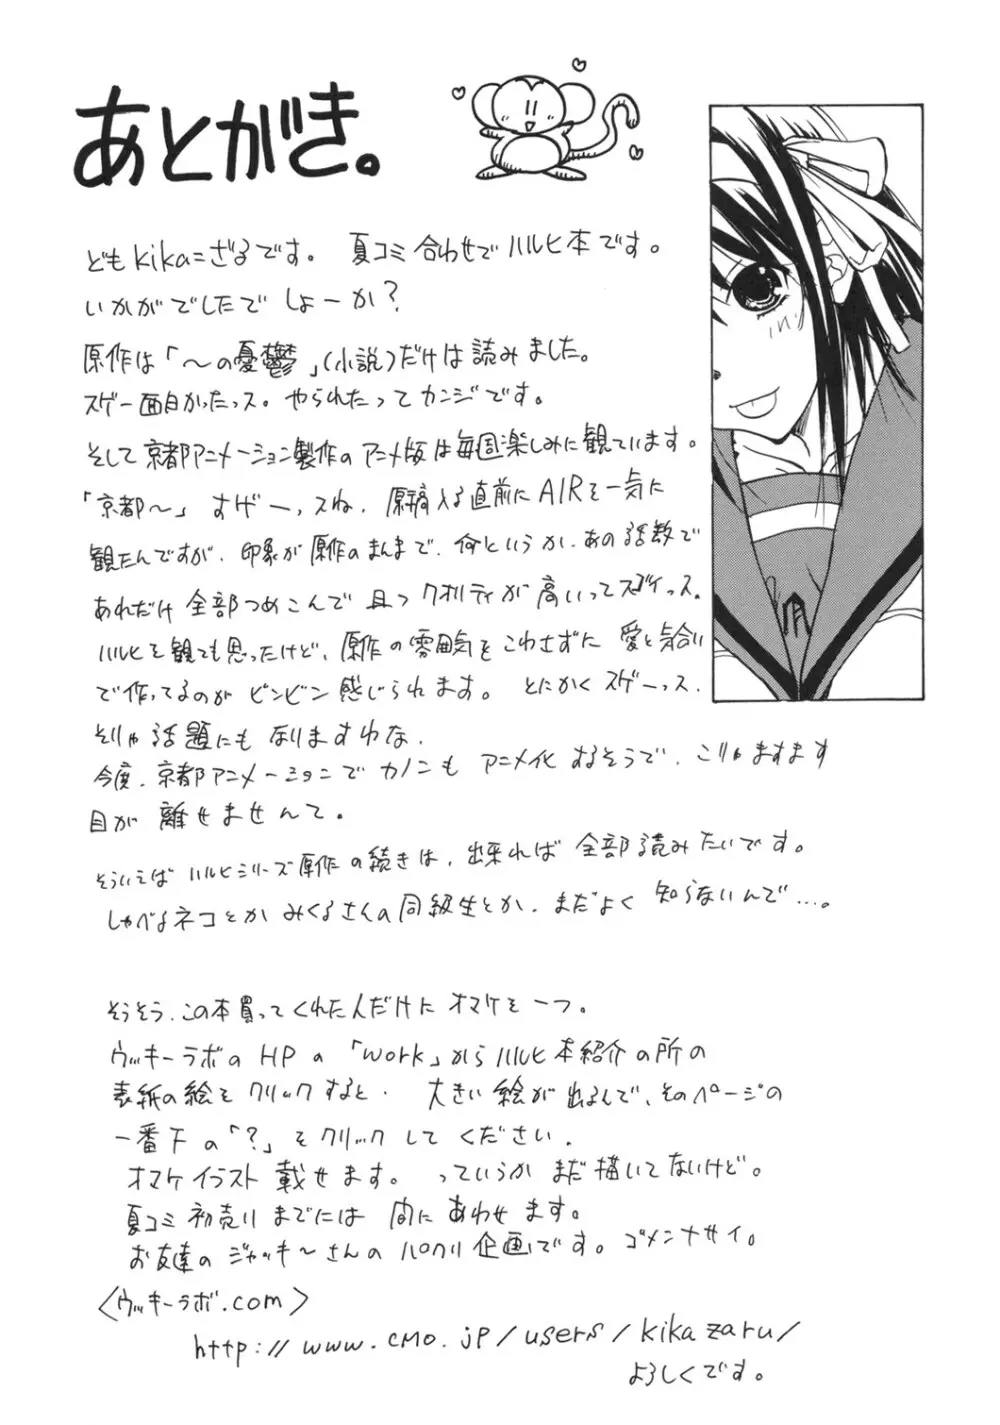 あとがき。
どもkika=ざるです。 夏コミ合わせでハルヒ本です。
いかがでしたでしょーか？
原作は「～の憂鬱」(小説)だけは読みました。
スゲー面白かったっス。やられたってカンジです。
そして京都アニメーション製作のアニメ版は毎週楽しみに観ています。
「京都～」すげーっスね。原稿入る直前にAIRを一気に
観たんですが、印象が原作のまんまで、何というか、あの話数で
あれだけ全部つめこんで且つクオリティが高いってスゴイっス。
ハルヒを観ても思ったけど、原作の雰囲気をこわさずに愛と気合い
で作ってるのがビンビン感じられます。とにかくスゲーっス。
そりゃ話題にもなりますわな。
今度、京都アニメーションでカノンもアニメ化するそうで、こりゃますます
目が離せませんて。
そういえばハルヒシリーズ原作の続きは、出来れば全部読みたいです。
しゃべるネコとかみくるさんの同級生とか、まだよく知らないんで…。
そうそう、この本買ってくれた人だけにオマケを一つ。
ウッキーラボのHPの「work」からハルヒ本紹介の所の
表紙の絵をクリックすると、大きい絵が出るんで、そのページの
一番下の「?」をクリックしてください。
オマケイラスト載せます。っていうかまだ描いてないけど。
夏コミ初売りまでには間にあわせます。
お友達のジャッキーさんのパクリ企画です。ゴメンナサイ。
〈ウッキーラボ.com〉
http://www.cmo.jp/users/kikazaru/
よろしくです。